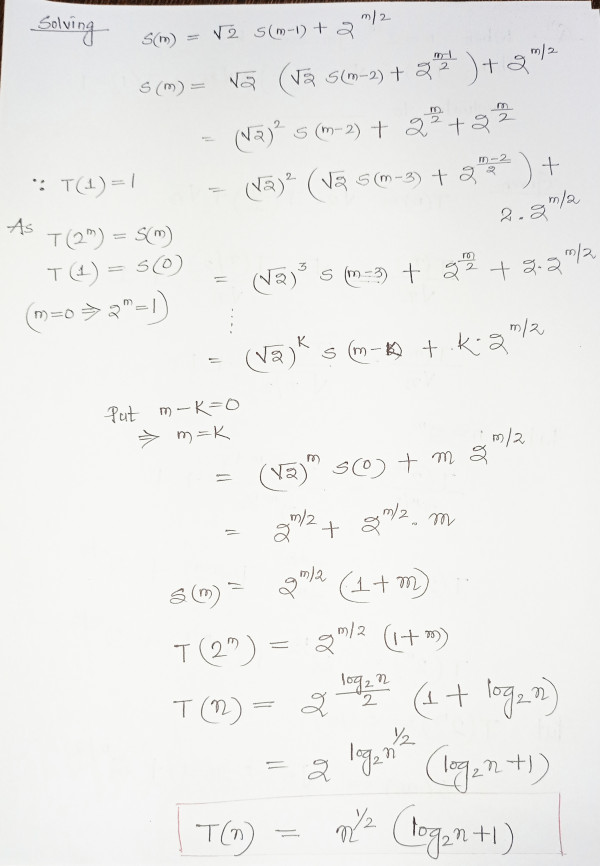 Solving
S(m) = √2 S(m-1) + 2^{m/2}
S(m) = √2 (√2 S(m-2) + 2^{\frac{m-1}{2}}) + 2^{m/2}
= (√2)^2 S(m-2) + 2^{\frac{m}{2}} + 2^{\frac{m}{2}}
∵ T(1) = 1
= (√2)^2 (√2 S(m-3) + 2^{\frac{m-2}{2}}) +
2 . 2^{m/2}
As T(2^m) = S(m)
T(1) = S(0)
(m=0 ⇒ 2^m = 1)
= (√2)^3 S(m-3) + 2^{\frac{m}{2}} + 2·2^{m/2}
⋮
= (√2)^K S(m-K) + K· 2^{m/2}
Put m-K=0
⇒ m=K
= (√2)^m S(0) + m 2^{m/2}
= 2^{m/2} + 2^{m/2} . m
S(m) = 2^{m/2} (1+m)
T(2^m) = 2^{m/2} (1+m)
T(n) = 2^{\frac{log_2 n}{2}} (1 + log_2 n)
= 2^{log_2 n^{1/2}} (log_2 n + 1)
T(n) = n^{1/2} (log_2 n + 1)